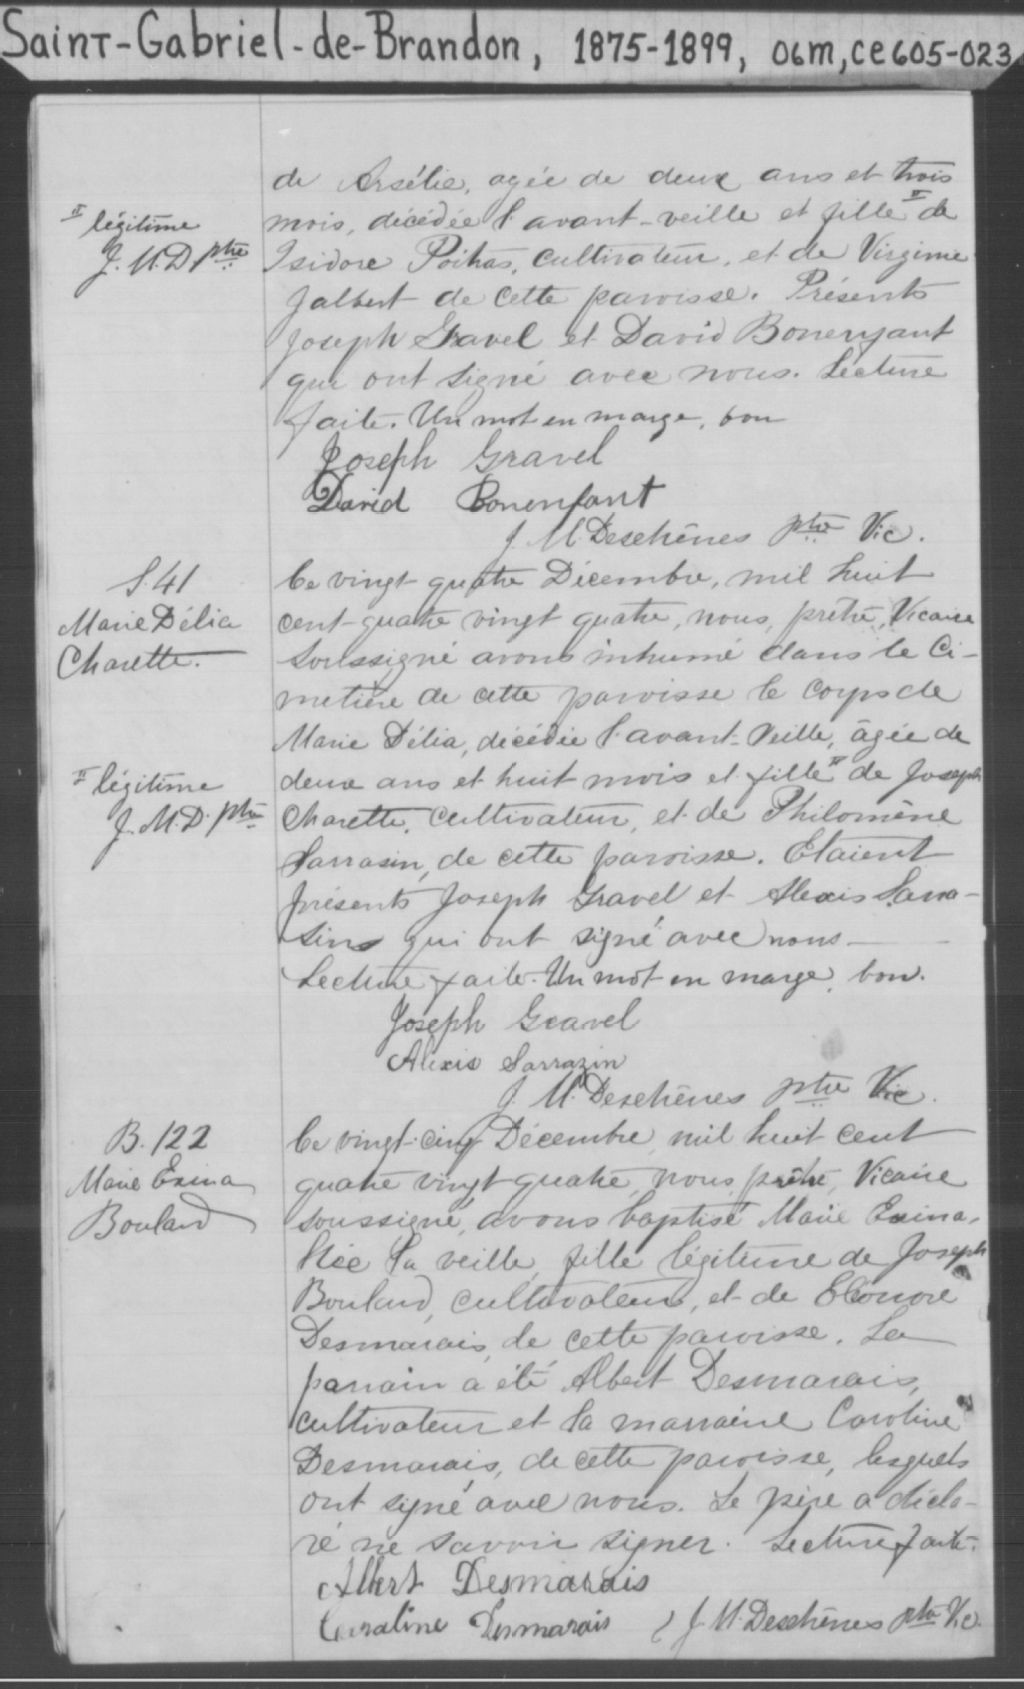 Saint-Gabriel-de-Brandon, 1875-1899, 06m,ce605-023
de Arsélie, agée de deux ans et trois
mois, décédée l'avant-veille et fille # de
# légitime
J. M. D ptre
Isidore Poitras, cultivateur, et de Virginie
Jalbert de cette paroisse. Présents
Joseph Gravel et David Bonenfant
qui ont signé avec nous. Lecture
faite. Un mot en marge, bon
Joseph Gravel
David Bonenfant
J. M. Deschênes ptre Vic.
S. 41
Marie Délia
Charette.
Ce vingt-quatre Décembre, mil huit
cent-quatre vingt quatre, nous, prêtre, Vicaire
soussigné avons inhumé dans le Ci-
metière de cette paroisse le corps de
Marie Délia, décédée l'avant-veille, âgée de
# légitime
J. M. D. ptre
deux ans et huit mois et fille # de Joseph
Charette, cultivateur, et de Philomène
Sarrasin, de cette paroisse. Etaient
présents Joseph Gravel et Alexis Sarra-
sins qui ont signé avec nous-
Lecture faite. Un mot en marge, bon.
Joseph Gravel
Alexis Sarrazin
J. M. Deschênes ptre Vic.
B. 122
Marie Exina
Boulard
Ce vingt-cinq Décembre, mil huit cent
quatre vingt quatre, nous, prêtre, Vicaire
soussigné, avons baptisé Marie Exina,
née la veille, fille légitime de Joseph
Boulard, cultivateur, et de Eléonore
Desmarais, de cette paroisse. Le
parrain a été Albert Desmarais,
cultivateur et la marraine Caroline
Desmarais, de cette paroisse, lesquels
ont signé avec nous. Le père a décla-
ré ne savoir signer. Lecture faite.
Albert Desmarais
Caroline Desmarais J. M. Deschênes ptre Vic.